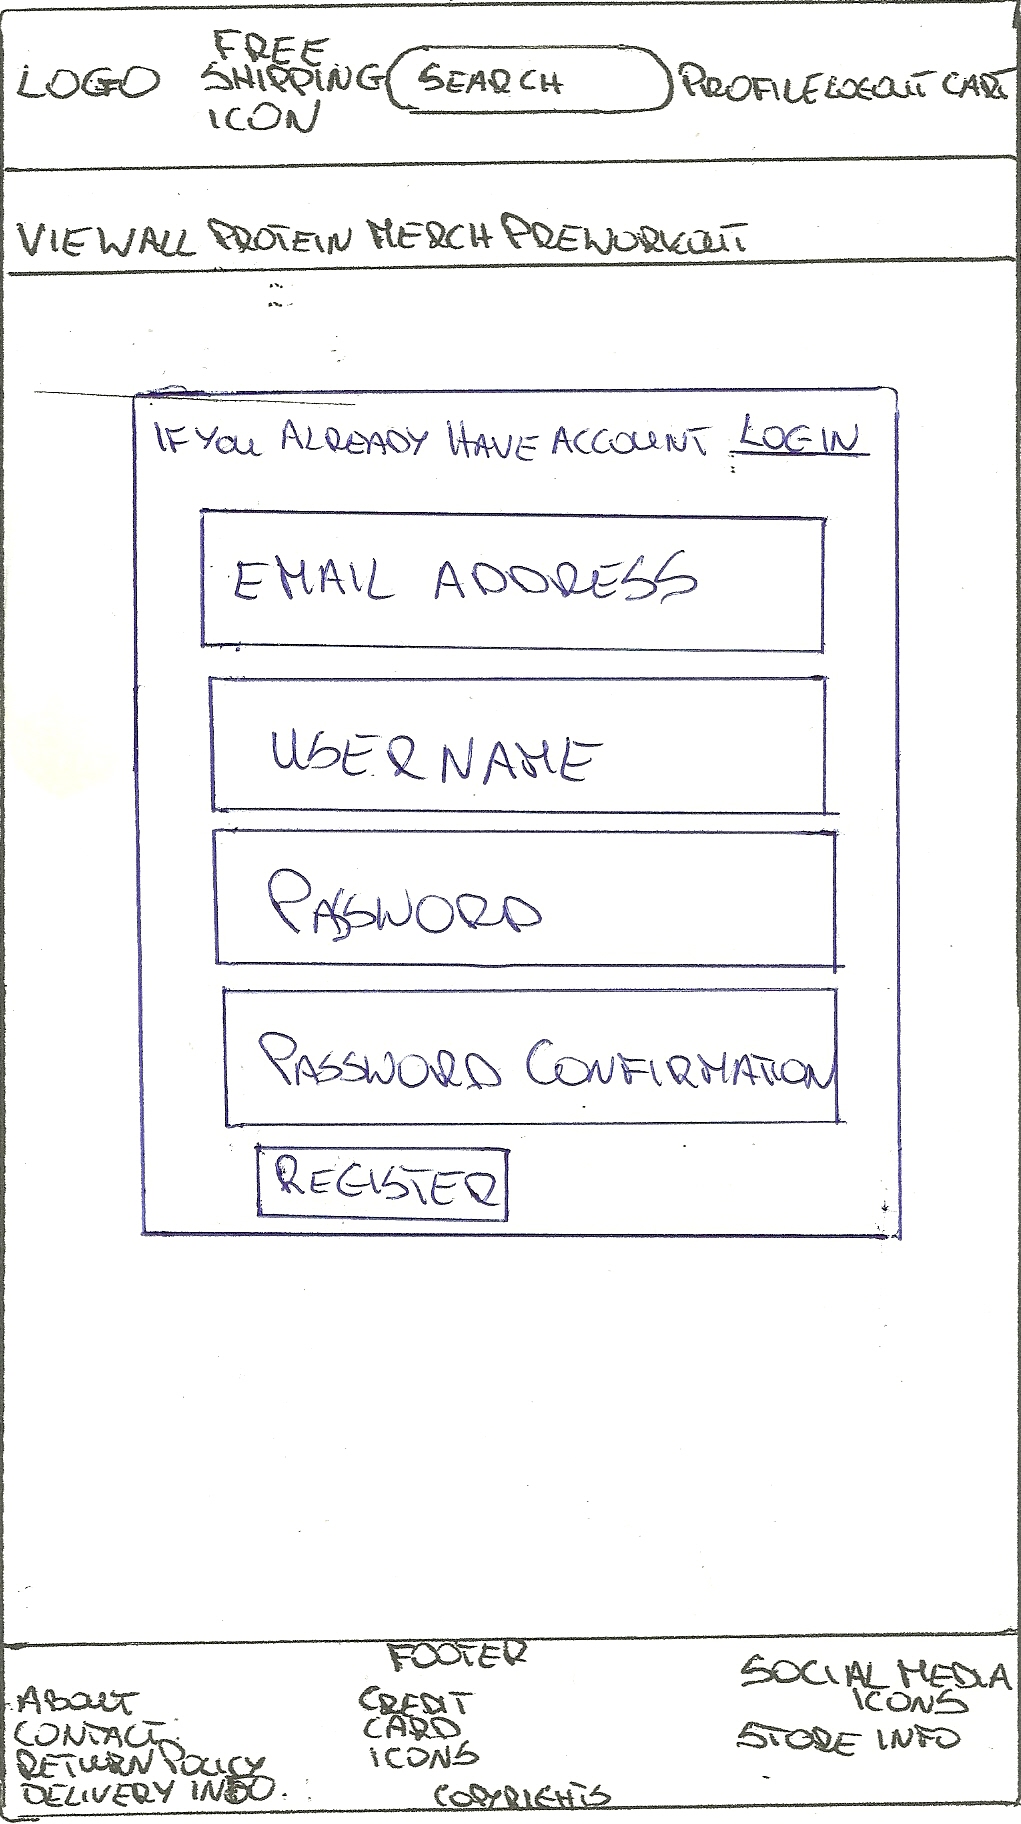 LOGO FREE SHIPPING ICON SEARCH PROFILE LOGOUT CART
VIEW ALL PROTEIN MERCH PREWORKOUT
IF YOU ALREADY HAVE ACCOUNT LOGIN
EMAIL ADDRESS
USERNAME
PASSWORD
PASSWORD CONFIRMATION
REGISTER
FOOTER
ABOUT
CONTACT
RETURN POLICY
DELIVERY INFO.
CREDIT
CARD
ICONS
COPYRIGHTS
SOCIAL MEDIA
ICONS
STORE INFO